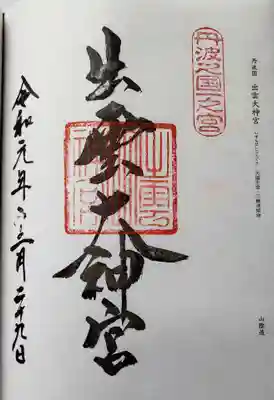 丹波国一之宮
丹波国 出雲大神宮
山陰道
出雲大神宮
令和元年十二月二十九日